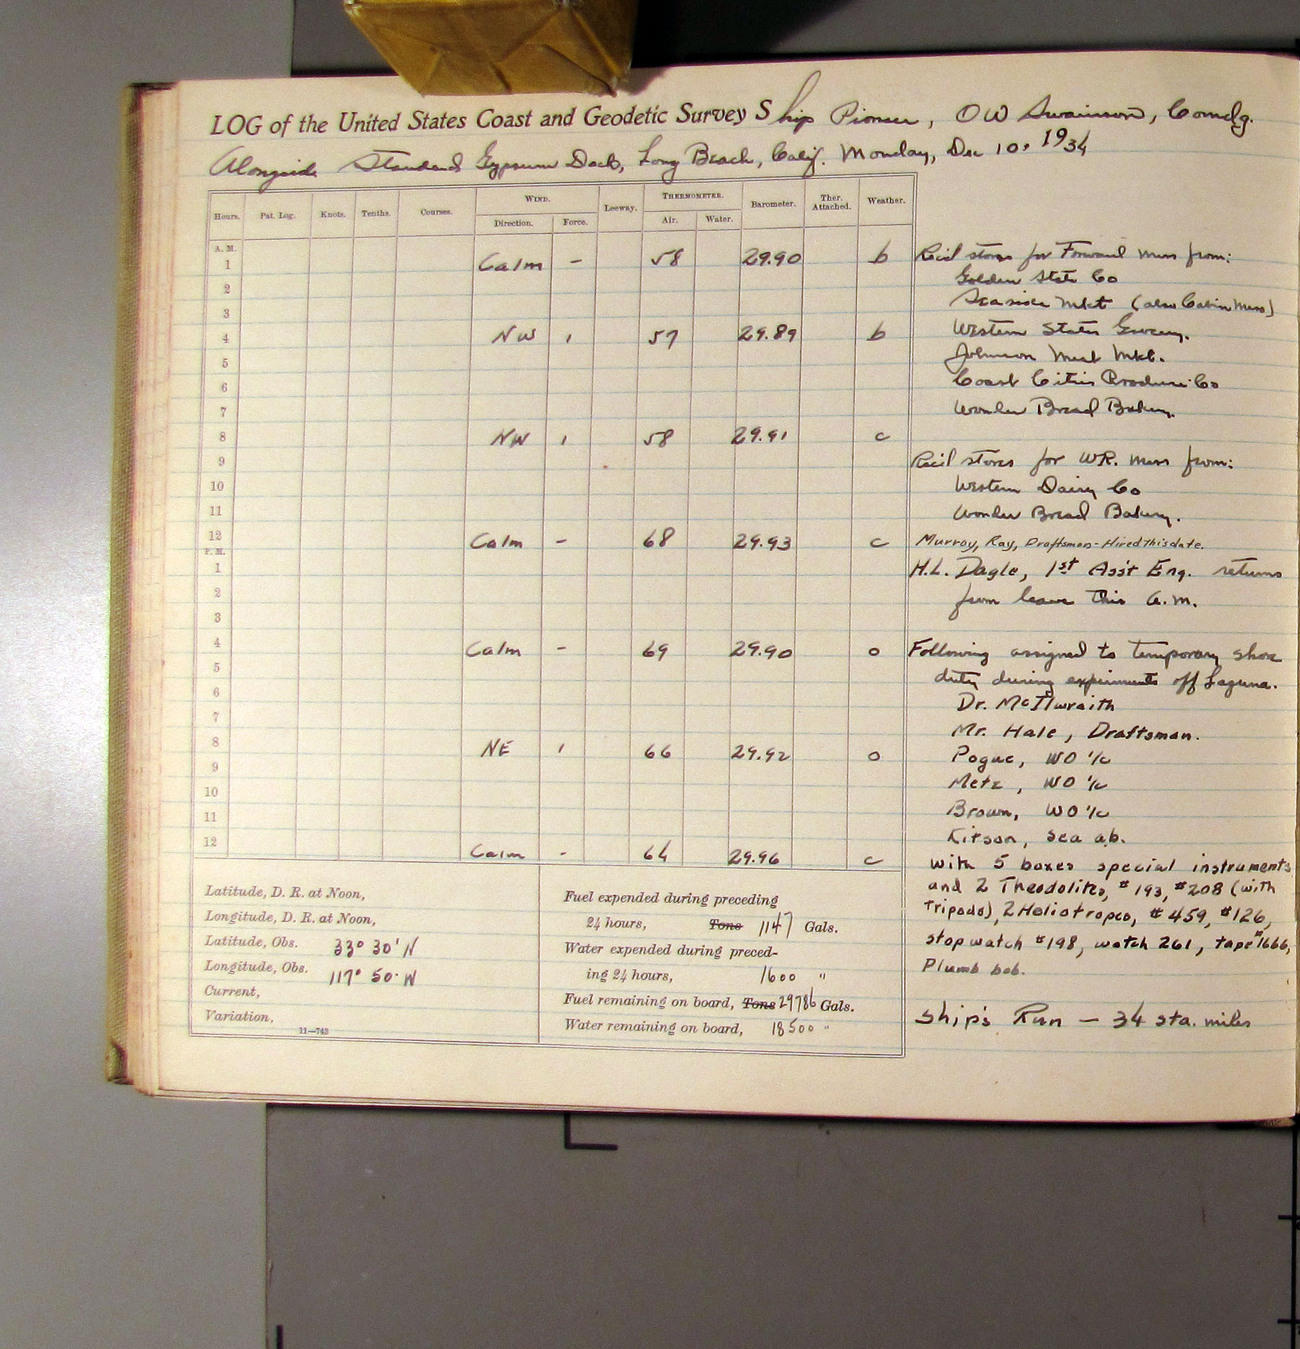 LOG of the United States Coast and Geodetic Survey Ship Pioneer, OW Swainson, Comdg.
Alongside Standard Gypsum Dock, Long Beach, Calif. Monday, Dec 10, 1934
Hours. Pat. Log. Knots. Tenths. Courses. WIND. Leeway. THERMOMETER. Barometer. Ther. Attached. Weather.
Direction. Force. Air. Water.
A. M.
1 Calm - 58 29.90 b
2
3
4 NW 1 57 29.89 b
5
6
7
8 NW 1 58 29.91 c
9
10
11
12 Calm - 68 29.93 c
P. M.
1
2
3
4 Calm - 69 29.90 o
5
6
7
8 NE 1 66 29.92 o
9
10
11
12 Calm - 64 29.96 c
Rec'd stores for Forward mess from:
Golden State Co
Seaside Mkt (also Cabin Mess)
Western States Grocery.
Johnson Meat Mkt.
Coast Cities Produce Co
Wonder Bread Bakery.
Rec'd stores for WR. mess from:
Western Dairy Co
Wonder Bread Bakery.
Murray, Ray, Draftsman - Hired this date.
H.L. Dagle, 1st Ass't Eng. returns
from leave this a.m.
Following assigned to temporary shore
duty during experiments off Laguna.
Dr. McIlwraith
Mr. Hale, Draftsman.
Pogue, WO 1/c
Metz, WO 1/c
Brown, WO 1/c
Kitson, Sea a.b.
with 5 boxes special instruments
and 2 Theodolites, #193, #208 (with
tripods), 2 Heliotropes, #459, #126,
stop watch #198, watch 261, tape #1666,
Plumb bob.
Ship's Run — 34 sta. miles
Latitude, D. R. at Noon,
Longitude, D. R. at Noon,
Latitude, Obs. 33° 30' N
Longitude, Obs. 117° 50' W
Current,
Variation,
11—743
Fuel expended during preceding
24 hours, Tons 1147 Gals.
Water expended during preced-
ing 24 hours, 1600 "
Fuel remaining on board, Tons 29786 Gals.
Water remaining on board, 18500 "